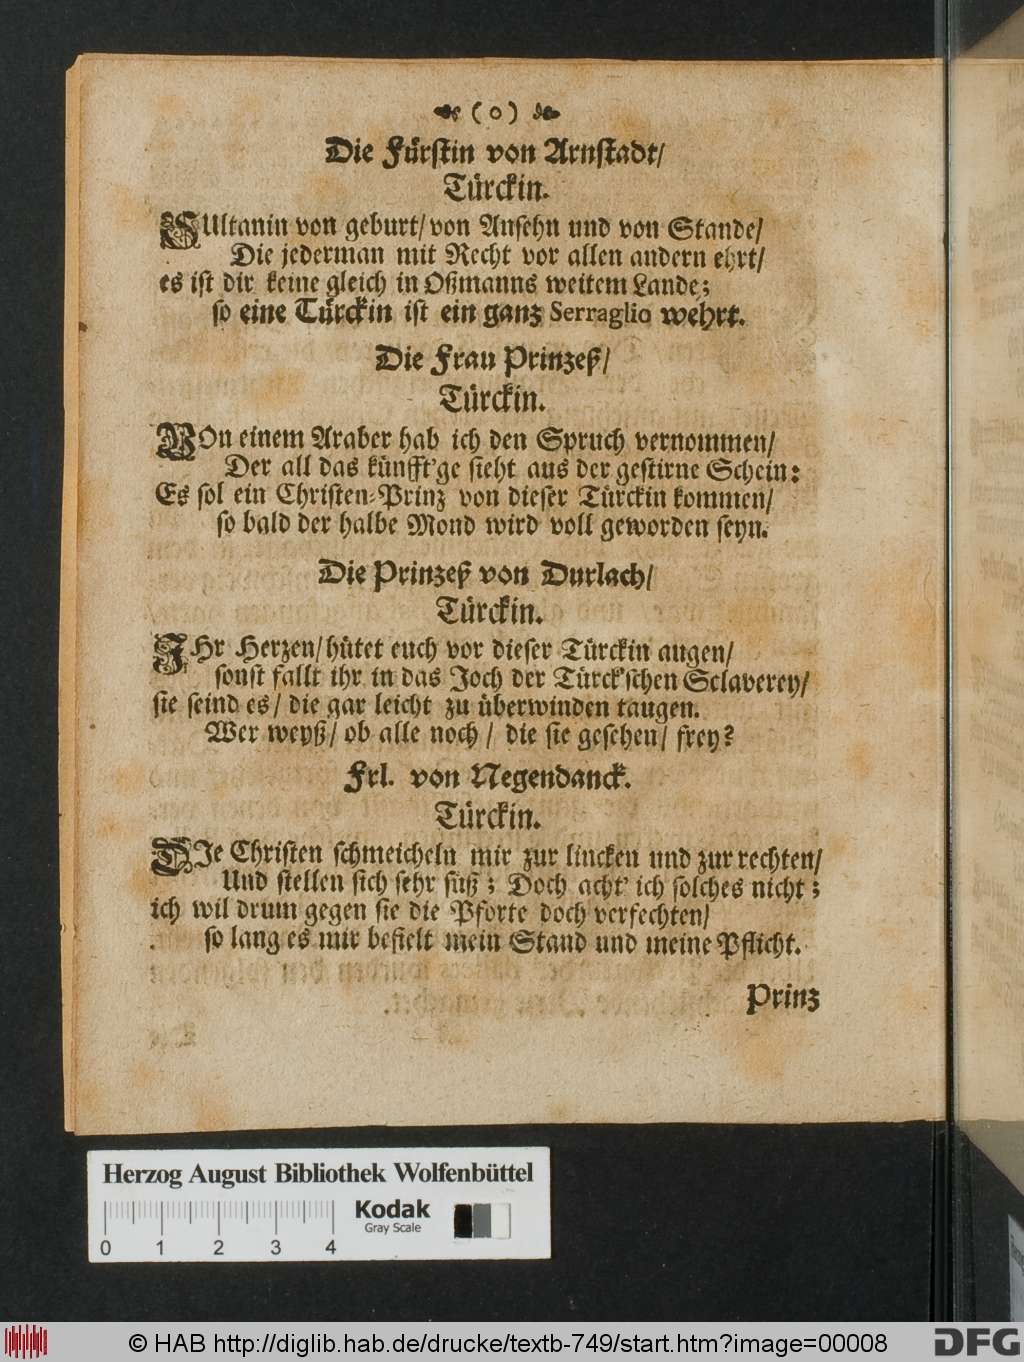 ( o )
Die Fürstin von Arnstadt/
Türckin.
SUltanin von geburt/ von Ansehn und von Stande/
Die jederman mit Recht vor allen andern ehrt/
es ist dir keine gleich in Oßmanns weitem Lande;
so eine Türckin ist ein ganz Serraglio wehrt.
Die Frau Prinzeß/
Türckin.
VOn einem Araber hab ich den Spruch vernommen/
Der all das künfft'ge sieht aus der gestirne Schein:
Es sol ein Christen-Prinz von dieser Türckin kommen/
so bald der halbe Mond wird voll geworden seyn.
Die Prinzeß von Durlach/
Türckin.
IHr Herzen/ hütet euch vor dieser Türckin augen/
sonst fallt ihr in das Joch der Türck'schen Sclaverey/
sie seind es/ die gar leicht zu überwinden taugen.
Wer weyß/ ob alle noch/ die sie gesehen/ frey?
Frl. von Negendanck.
Türckin.
DIe Christen schmeicheln mir zur lincken und zur rechten/
Und stellen sich sehr süß; Doch acht' ich solches nicht;
ich wil drum gegen sie die Pforte doch verfechten/
so lang es mir befielt mein Stand und meine Pflicht.
Prinz
Herzog August Bibliothek Wolfenbüttel
Kodak
Gray Scale
0 1 2 3 4
© HAB http://diglib.hab.de/drucke/textb-749/start.htm?image=00008
DFG